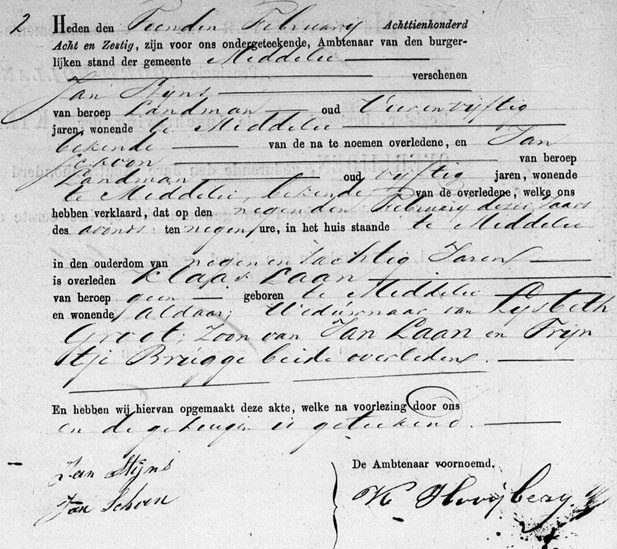 2 Heden den Tienden February Achttienhonderd
Acht en Zestig, zijn voor ons ondergeteekende, Ambtenaar van den burger-
lijken stand der gemeente Middelie
verschenen
Jan Stijns
van beroep Landman oud Vierenvijftig
jaren, wonende te Middelie
bekende van de na te noemen overledene, en Jan
Schoon van beroep
Landman oud vijftig jaren, wonende
te Middelie, bekende van de overledene, welke ons
hebben verklaard, dat op den negenden February dezes Jaars
des avonds ten negen ure, in het huis staande te Middelie
in den ouderdom van negen en tachtig Jaren
is overleden Klaas Laan
van beroep geen geboren te Middelie
en wonende aldaar, Weduwnaar van Lijsbeth
Groot; Zoon van Jan Laan en Trijn
tje Brugge beide overleden.
En hebben wij hiervan opgemaakt deze akte, welke na voorlezing door ons
en de getuigen is geteekend.
De Ambtenaar voornoemd.
Jan Stijns
Jan Schoon
K Hooijberg